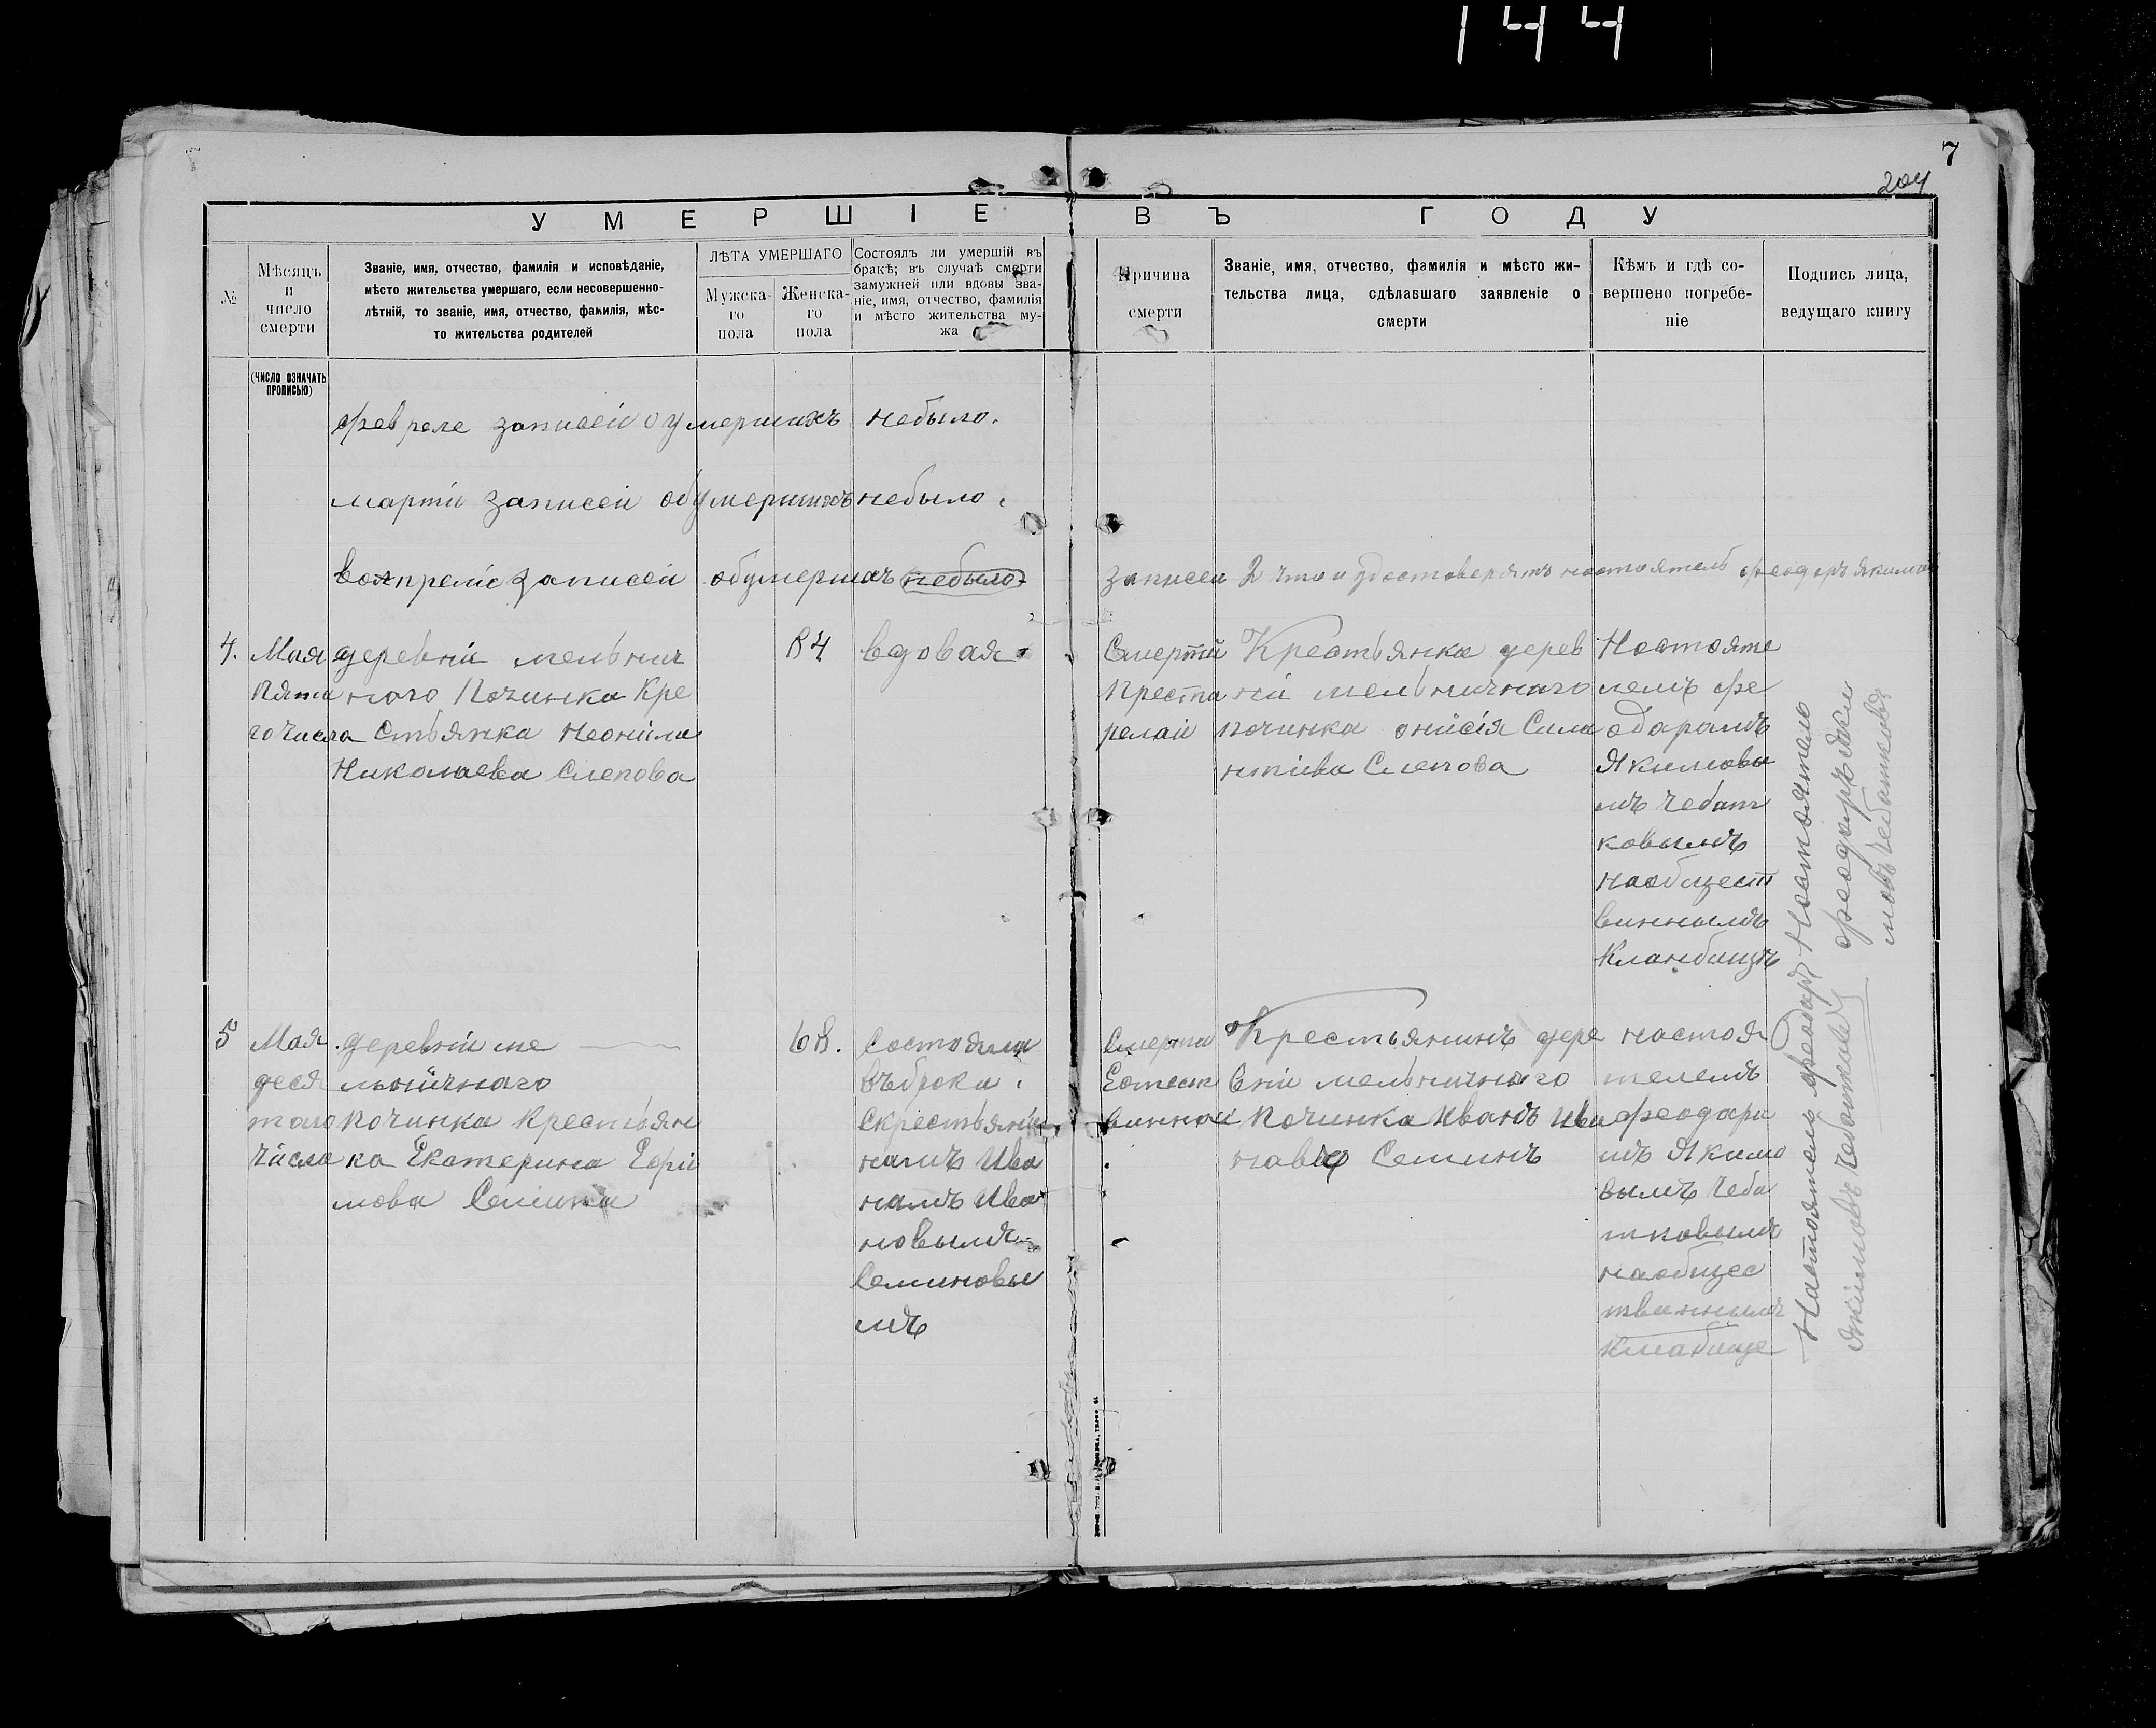 144
7
204
УМЕРШІЕ ВЪ ГОДУ
№
Мѣсяцъ
и
число
смерти
Званіе, имя, отчество, фамилія и исповѣданіе,
мѣсто жительства умершаго, если несовершенно-
лѣтній, то званіе, имя, отчество, фамилія, мѣс-
то жительства родителей
ЛѢТА УМЕРШАГО
Мужска-
го
пола
Женска-
го
пола
Состоялъ ли умершій въ
бракѣ; въ случаѣ смерти
замужней или вдовы зва-
ніе, имя, отчество, фамилія
и мѣсто жительства му-
жа
Причина
смерти
Званіе, имя, отчество, фамилія и мѣсто жи-
тельства лица, сдѣлавшаго заявленіе о
смерти
Кѣмъ и гдѣ со-
вершено погребе-
ніе
Подпись лица,
ведущаго книгу
(ЧИСЛО ОЗНАЧАТЬ
ПРОПИСЬЮ)
февреле записей о умершихъ небыло.
марти записей обумершихъ небыло.
вопреліе записей обумершихъ небыло
записей 2 что и удостоверятъ настоятель феодоръ якимовъ
4.
Мая
пята
го числа
деревни мельнич
ного Починка Кре
стьянка Неонила
Николаева Слепова
84
вдовая
Смертй
преста
релай
Крестьянка дерев
ни мельничнаго
починка онисія Сила
нтиева Слепова
Настояте
лемъ фе
одарамъ
Якимовы
мъ Чебат
ковымъ
наобщест
виннымъ
Кланбищъ
Настоятель
феодоръ Яки
мовъ Чебатковъ
5
Мая
деся
таго
числа
деревніи ме
льничнаго
починка крестьян
ка Екатерина Ефи
мова Семина
68.
Состояла
въброки
Скрестьяни
намъ Ива
намъ Ива
новымъ
Семиновы
мъ
Смерти
Естеств
винной
Крестьянинъ дере
вніи мельничнаго
Починка Иванъ Ива
навъ Семинъ
настоя
телемъ
феодара
мъ Якимо
вымъ Чеба
тковымъ
наобщес
твиннымъ
Клабище
Настоятель феодаръ
Якимовъ Чебатковъ